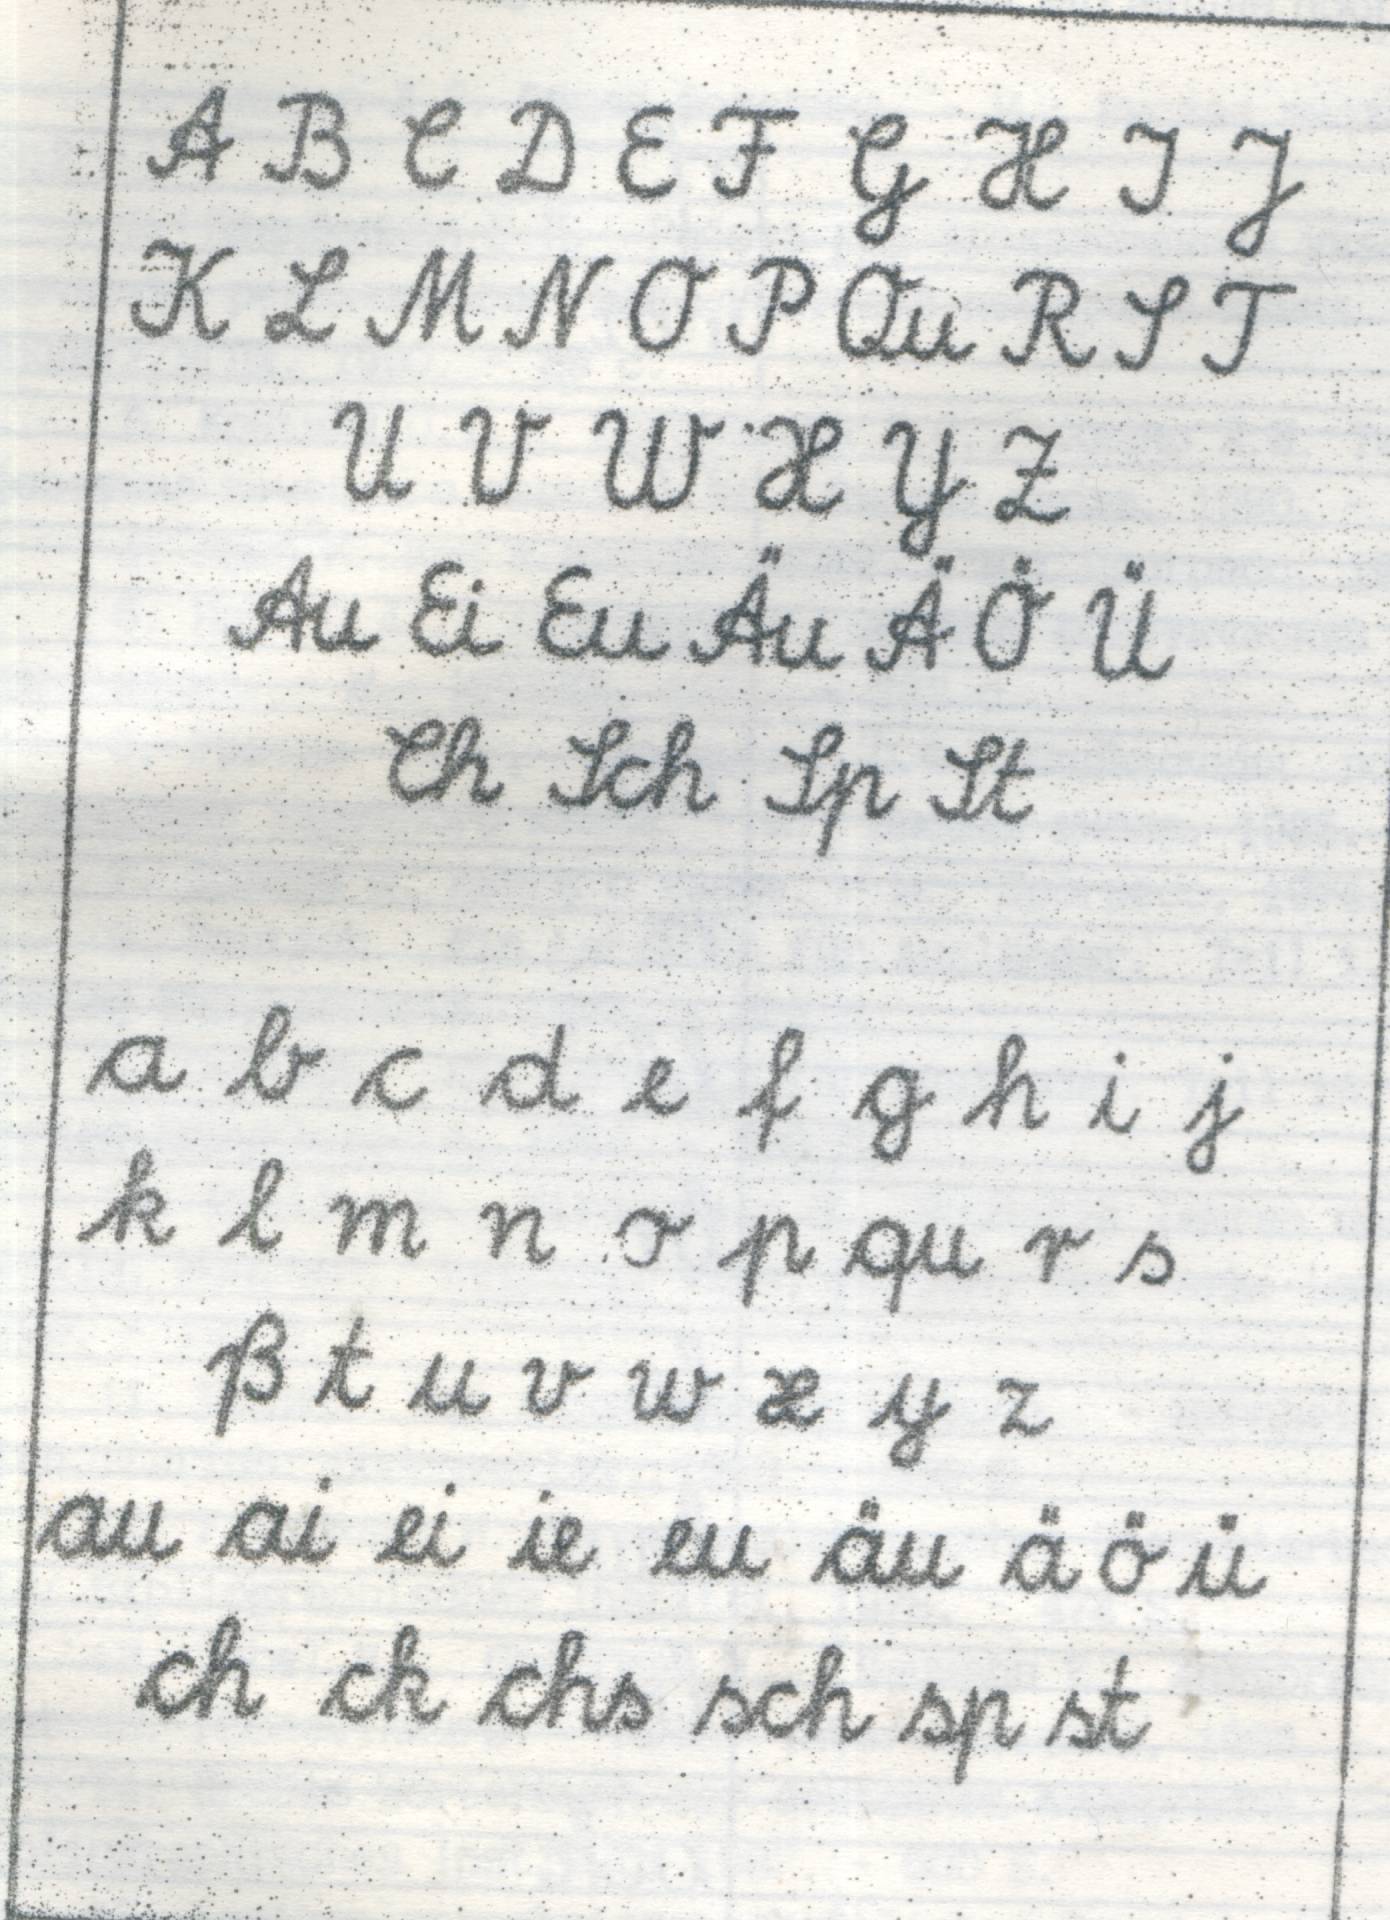 A B C D E F G H I J
K L M N O P Qu R S T
U V W X Y Z
Au Ei Eu Äu Ä Ö Ü
Ch Sch Sp St
a b c d e f g h i j
k l m n o p qu r s
ß t u v w x y z
au ai ei ie eu äu ä ö ü
ch ck chs sch sp st